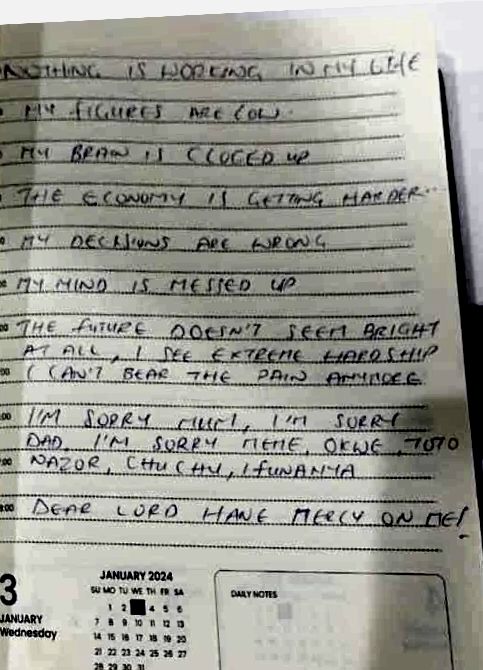 NOTHING IS WORKING IN MY LIFE
MY FIGURES ARE LOW.
MY BRAIN IS CLOGED UP
THE ECONOMY IS GETTING HARDER..
MY DECISIONS ARE WRONG
MY MIND IS MESSED UP
THE FUTURE DOESN'T SEEM BRIGHT
AT ALL, I SEE EXTREME HARDSHIP
I CAN'T BEAR THE PAIN ANYMORE
I'M SORRY MUM, I'M SORRY
DAD, I'M SORRY MEME, OKWE, TOTO
NAZOR, CHUCHU, IFUNANYA
DEAR LORD HAVE MERCY ON ME!
3
JANUARY
Wednesday
JANUARY 2024
SU MO TU WE TH FR SA
1 2 4 5 6
7 8 9 10 11 12 13
14 15 16 17 18 19 20
21 22 23 24 25 26 27
28 29 30 31
DAILY NOTES